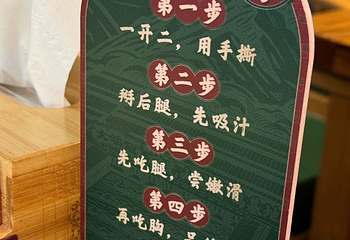 第一步
一开二，用手撕
第二步
掰后腿，先吸汁
第三步
先吃腿，尝嫩滑
第四步
再吃胸，